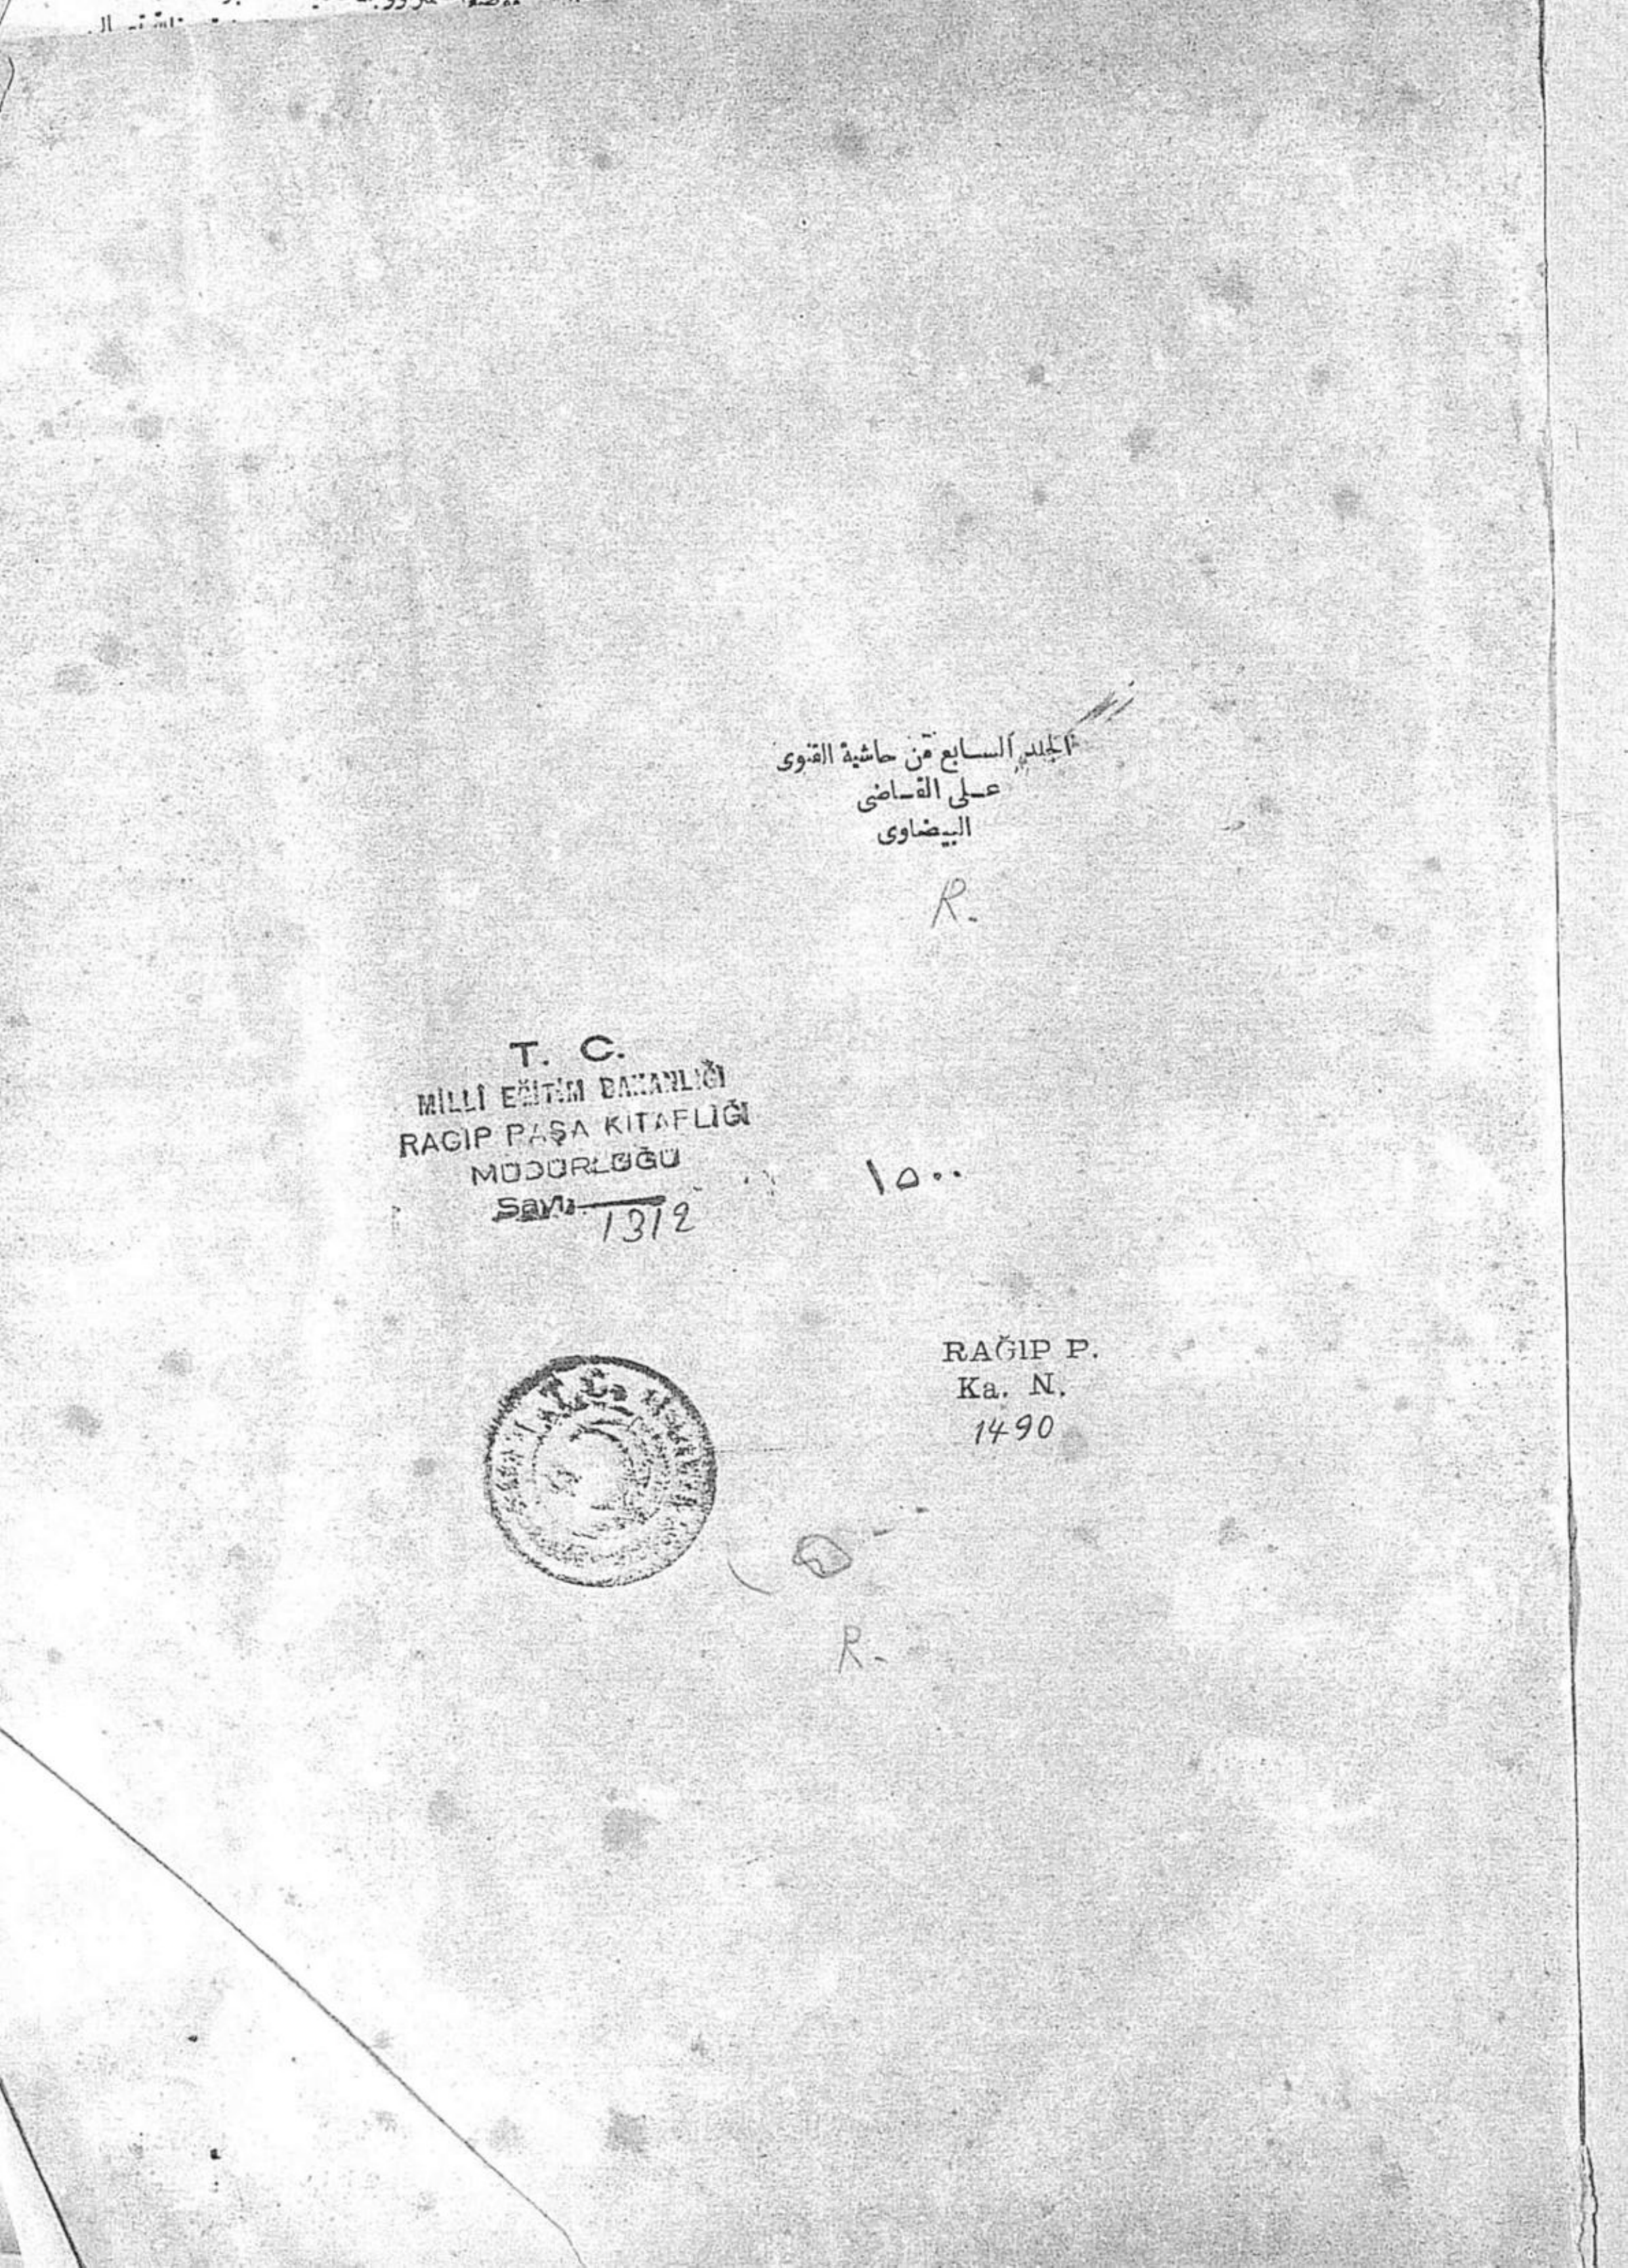 الجلد السابع من حاشية القنوى
على القاضى
البيضاوى
R.
T. C.
MİLLÎ EĞİTİM BAKANLIĞI
RAGIP PAŞA KİTAPLIĞI
MÜDÜRLÜĞÜ
Sayı
1312
١٥٠٠
RAĞIP P.
Ka. N.
1490
T. C.
R.